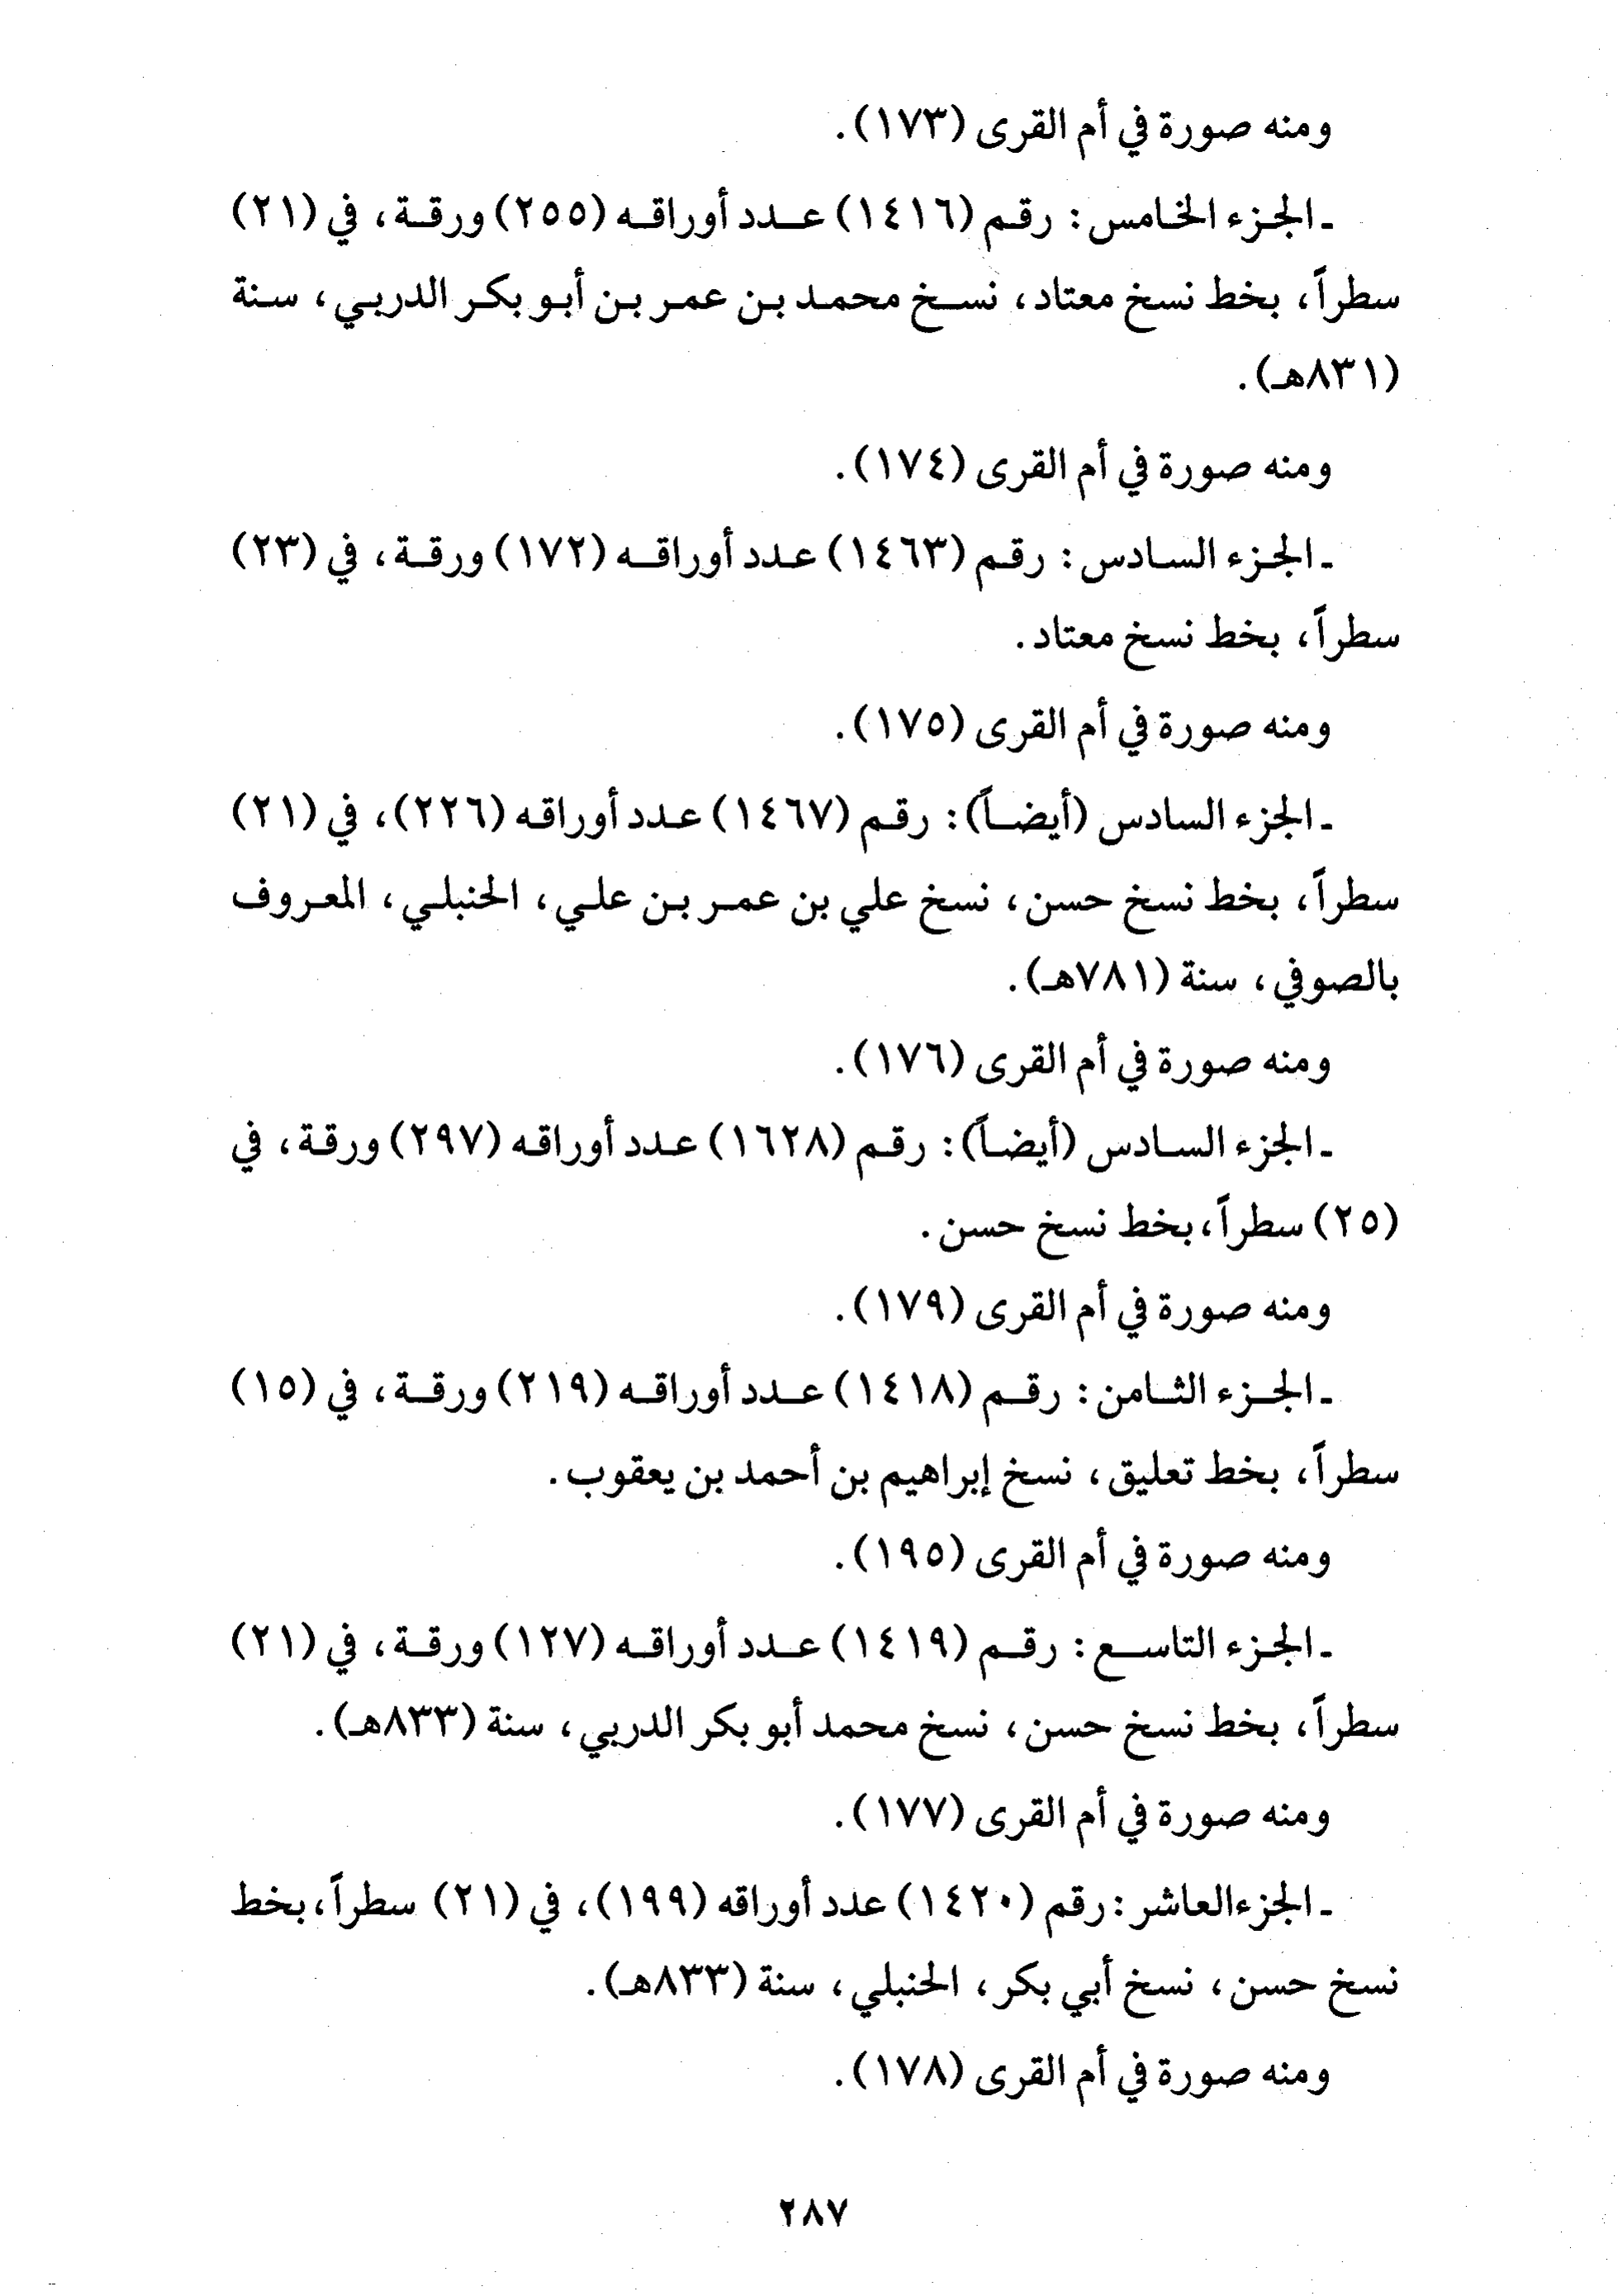 ومنه صورة في أم القرى (١٧٣).
ـ الجزء الخامس: رقم (١٤١٦) عدد أوراقه (٢٥٥) ورقة، في (٢١)
سطراً، بخط نسخ معتاد، نسخ محمد بن عمر بن أبو بكر الدربي، سنة
(٨٣١هـ).
ومنه صورة في أم القرى (١٧٤).
ـ الجزء السادس: رقم (١٤٦٣) عدد أوراقه (١٧٢) ورقة، في (٢٣)
سطراً، بخط نسخ معتاد.
ومنه صورة في أم القرى (١٧٥).
ـ الجزء السادس (أيضاً): رقم (١٤٦٧) عدد أوراقه (٢٢٦)، في (٢١)
سطراً، بخط نسخ حسن، نسخ علي بن عمر بن علي، الحنبلي، المعروف
بالصوفي، سنة (٧٨١هـ).
ومنه صورة في أم القرى (١٧٦).
ـ الجزء السادس (أيضاً): رقم (١٦٢٨) عدد أوراقه (٢٩٧) ورقة، في
(٢٥) سطراً، بخط نسخ حسن.
ومنه صورة في أم القرى (١٧٩).
ـ الجزء الثامن: رقم (١٤١٨) عدد أوراقه (٢١٩) ورقة، في (١٥)
سطراً، بخط تعليق، نسخ إبراهيم بن أحمد بن يعقوب.
ومنه صورة في أم القرى (١٩٥).
ـ الجزء التاسع: رقم (١٤١٩) عدد أوراقه (١٢٧) ورقة، في (٢١)
سطراً، بخط نسخ حسن، نسخ محمد أبو بكر الدربي، سنة (٨٣٣هـ).
ومنه صورة في أم القرى (١٧٧).
ـ الجزء العاشر: رقم (١٤٢٠) عدد أوراقه (١٩٩)، في (٢١) سطراً، بخط
نسخ حسن، نسخ أبي بكر، الحنبلي، سنة (٨٣٣هـ).
ومنه صورة في أم القرى (١٧٨).
٢٨٧